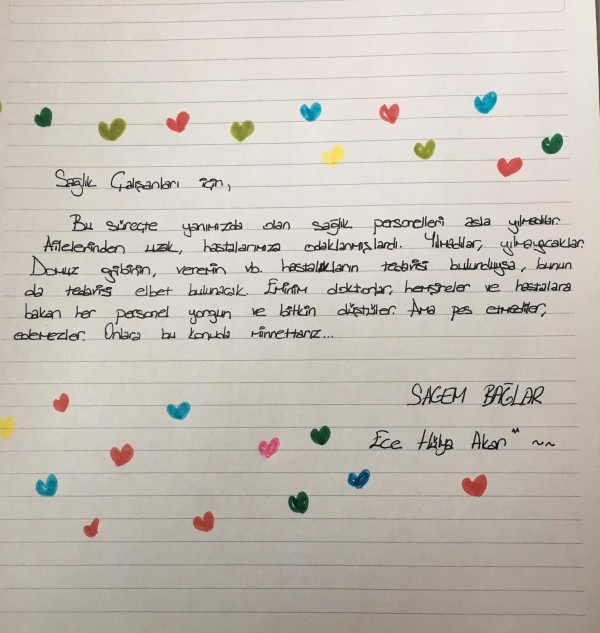 Sağlık Çalışanları için,
Bu süreçte yanımızda olan sağlık personelleri asla yılmadılar.
Ailelerinden uzak, hastalarımıza odaklanmışlardı. Yılmadılar, yılmayacaklar.
Domuz gibirin, veremin vb. hastalıkların tedavisi bulunduysa, bunun
da tedavisi elbet bulunacak. Eminim doktorlar, hemşireler ve hastalara
bakan her personel yorgun ve bitkin düştüler. Ama pes etmediler,
edemezler. Onlara bu konuda minnettarız...
SAGEM BAĞLAR
Ece Hülya Akan